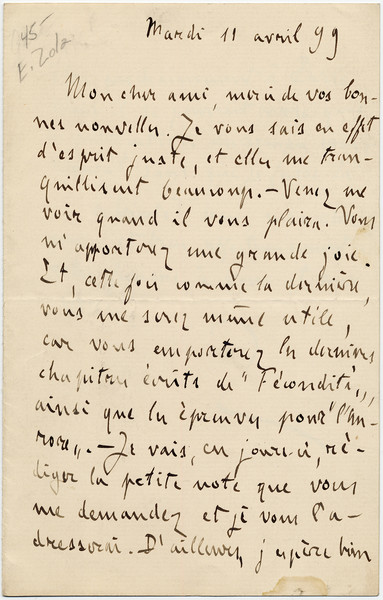 45-
E. Zola
Mardi 11 avril 99
Mon cher ami, merci de vos bon-
nes nouvelles. Je vous sais en effet
d'esprit juste, et elles me tran-
quillisent beaucoup. – Venez me
voir quand il vous plaira. Vous
m'apporterez une grande joie.
Et, cette fois comme la dernière,
vous me serez même utile,
car vous emporterez les derniers
chapitres écrits de "Fécondité",
ainsi que les épreuves pour "l'Au-
rore". – Je vais, ces jours-ci, ré-
diger la petite note que vous
me demandez et je vous l'a-
dresserai. D'ailleurs, j'espère bien